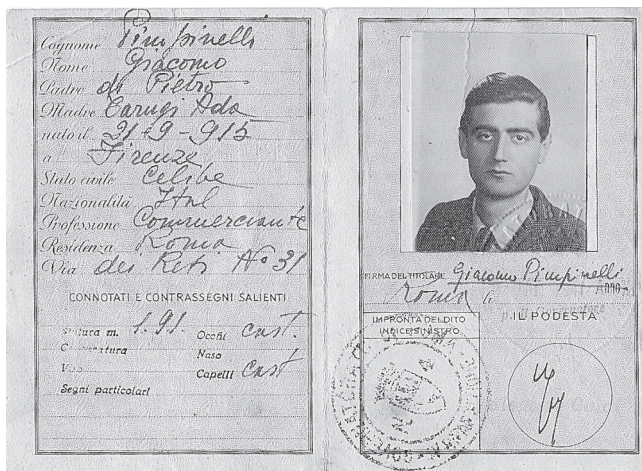 Cognome Pimpinelli
Nome Giacomo
Padre di Pietro
Madre Carugi Ada
nato il 21-9-915
a Firenze
Stato civile Celibe
Nazionalità Ital
Professione Commerciante
Residenza Roma
Via dei Reti No 31
CONNOTATI E CONTRASSEGNI SALIENTI
Statura m. 1.91.
Corporatura
Viso
Segni particolari
Occhi Cast.
Naso
Capelli Cast
FIRMA DEL TITOLARE Giacomo Pimpinelli
Roma li
IMPRONTA DEL DITO
INDICE SINISTRO
IL PODESTÀ